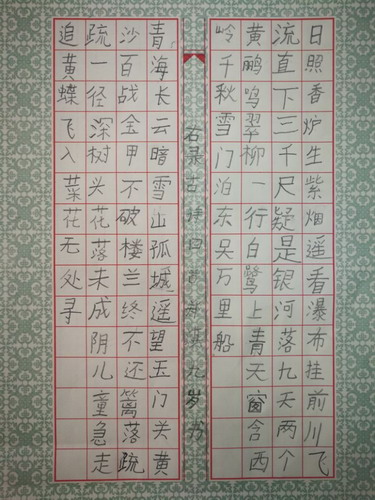 日照香炉生紫烟遥看瀑布挂前川飞
流直下三千尺疑是银河落九天两个
黄鹂鸣翠柳一行白鹭上青天窗含西
岭千秋雪门泊东吴万里船
右录古诗四首九岁书
青海长云暗雪山孤城遥望玉门关黄
沙百战金甲不破楼兰终不还篱落疏
疏一径深树头花落未成阴儿童急走
追黄蝶飞入菜花无处寻